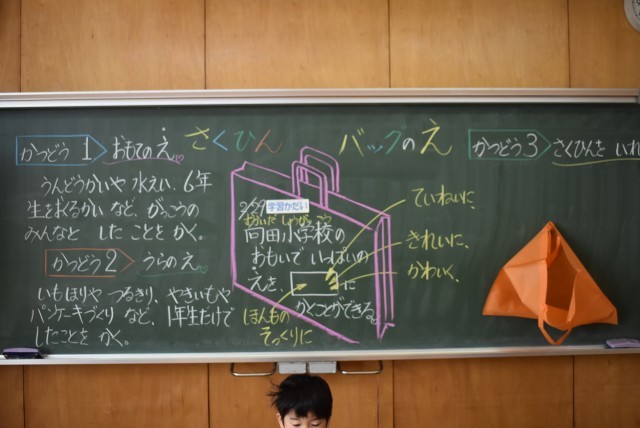 さくひん バッグのえ
かつどう1 おもてのえ
うんどうかいや 水えい、6年
生をおくるかい など、がっこうの
みんなと したことをかく。
かつどう2 うらのえ
いもほりや つるきり、やきいもや
パンケーキづくり など、1年生だけで
したことを かく。
2/29 学習かだい
おいだ しょうがっこう
向田小学校の
おもいで いっぱいの
えを、 に
かくことができる。
ていねいに、
きれいに、
かわいく、
ほんもの
そっくりに
かつどう3 さくひんを いれ